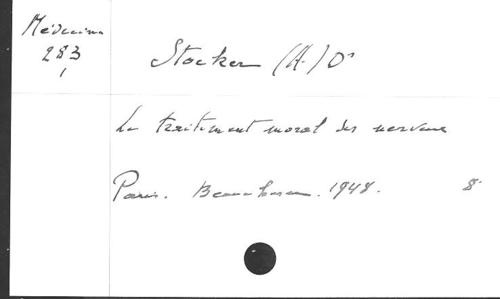 Médecine
283
1
Stocker (A.) Dr
Le traitement moral des nerveux
Paris. Beauchesne. 1948. 8°